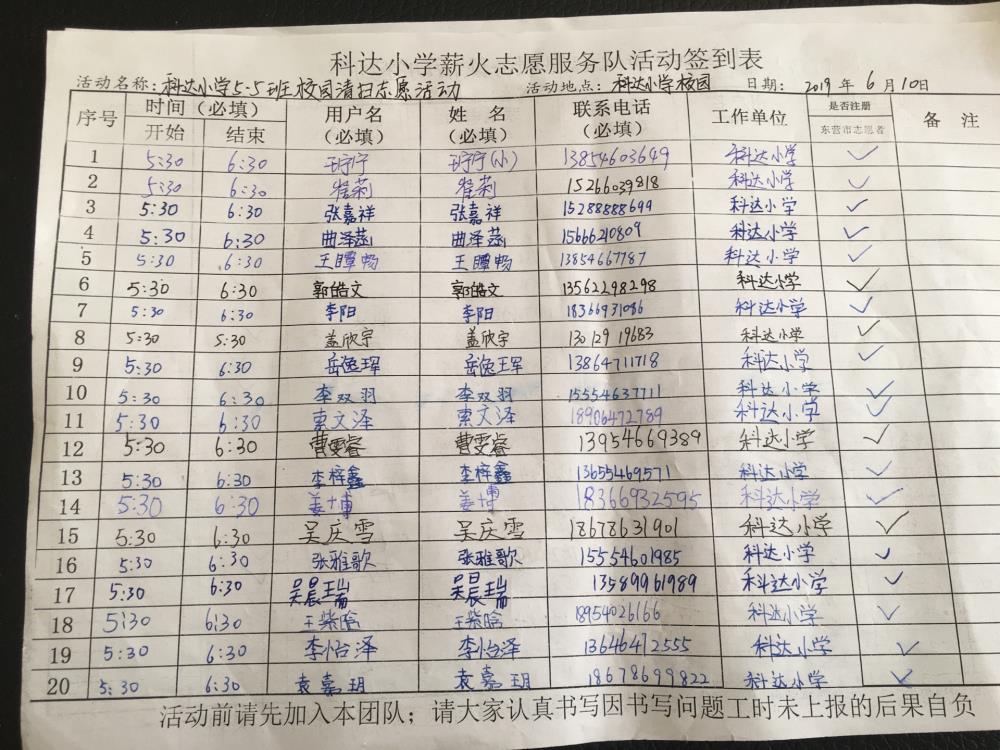 科达小学薪火志愿服务队活动签到表
活动名称：科达小学5-5班校园清扫志愿活动 活动地点：科达小学校园 日期：2019年6月10日
序号 时间（必填） 用户名（必填） 姓名（必填） 联系电话（必填） 工作单位 是否注册东营市志愿者 备注
开始 结束
1 5:30 6:30 于宁 于宁(小) 13854603649 科达小学 ✓
2 5:30 6:30 崔莉 崔莉 15266039818 科达小学 ✓
3 5:30 6:30 张嘉祥 张嘉祥 15288888699 科达小学 ✓
4 5:30 6:30 曲泽菡 曲泽菡 15666210809 科达小学 ✓
5 5:30 6:30 王瞳畅 王瞳畅 13854667787 科达小学 ✓
6 5:30 6:30 郭皓文 郭皓文 13562298298 科达小学 ✓
7 5:30 6:30 李阳 李阳 18366931086 科达小学 ✓
8 5:30 5:30 盖欣宇 盖欣宇 13012919683 科达小学 ✓
9 5:30 6:30 岳逸珲 岳逸珲 13864711718 科达小学 ✓
10 5:30 6:30 李双羽 李双羽 15554637711 科达小学 ✓
11 5:30 6:30 索文泽 索文泽 18906472789 科达小学 ✓
12 5:30 6:30 曹雯睿 曹雯睿 13954669389 科达小学 ✓
13 5:30 6:30 李梓鑫 李梓鑫 13655469571 科达小学 ✓
14 5:30 6:30 姜博 姜博 18366932595 科达小学 ✓
15 5:30 6:30 吴庆雪 吴庆雪 18678631901 科达小学 ✓
16 5:30 6:30 张雅歌 张雅歌 15554601985 科达小学 ✓
17 5:30 6:30 吴晨瑞 吴晨瑞 13589961989 科达小学 ✓
18 5:30 6:30 王紫晗 王紫晗 18954026166 科达小学 ✓
19 5:30 6:30 李怡泽 李怡泽 13646472555 科达小学 ✓
20 5:30 6:30 袁嘉玥 袁嘉玥 18678699822 科达小学 ✓
活动前请先加入本团队；请大家认真书写因书写问题工时未上报的后果自负